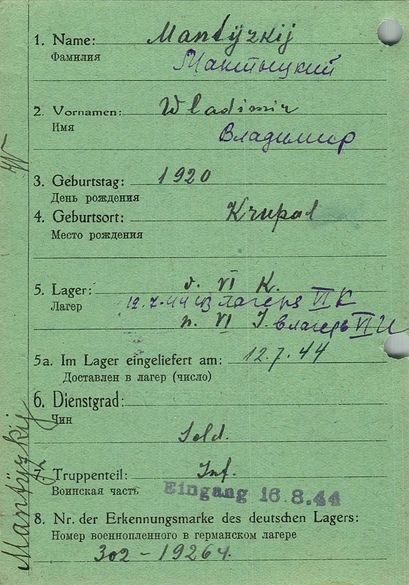 1. Name: Mantÿzkij
Фамилия Мантыцкий
2. Vornamen: Wladimir
Имя Владимир
3. Geburtstag: 1920
День рождения
4. Geburtsort: Krupal
Место рождения
5. Lager: v. VI K.
Лагер 12.7.44 из лагеря VI К
n. VI J в лагерь VI И
5a. Im Lager eingeliefert am: 12.7.44
Доставлен в лагер (число)
6. Dienstgrad:
Чин
Sold.
Truppenteil: Inf.
Воинская часть Eingang 16.8.44
8. Nr. der Erkennungsmarke des deutschen Lagers:
Номер военнопленного в германском лагере
302-19264.
Mantÿzkij